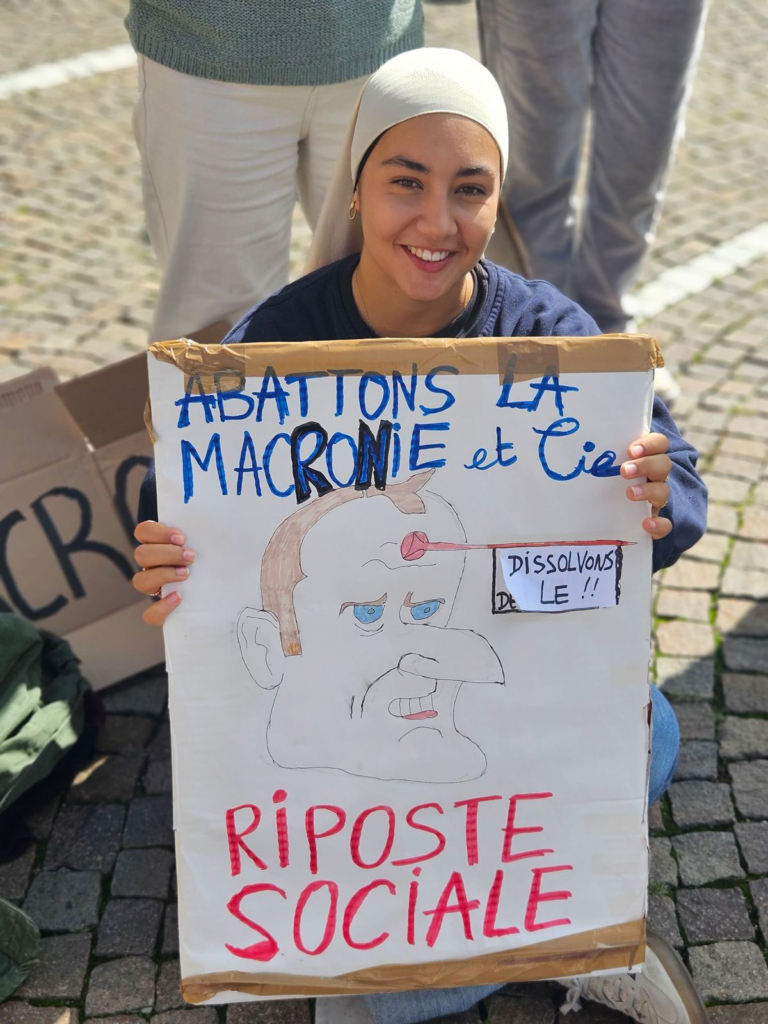 ABATTONS LA
MACRONiE et Cie
DISSOLVONS
DE LE !!
RiPOSTE
SOCiALE
CRO